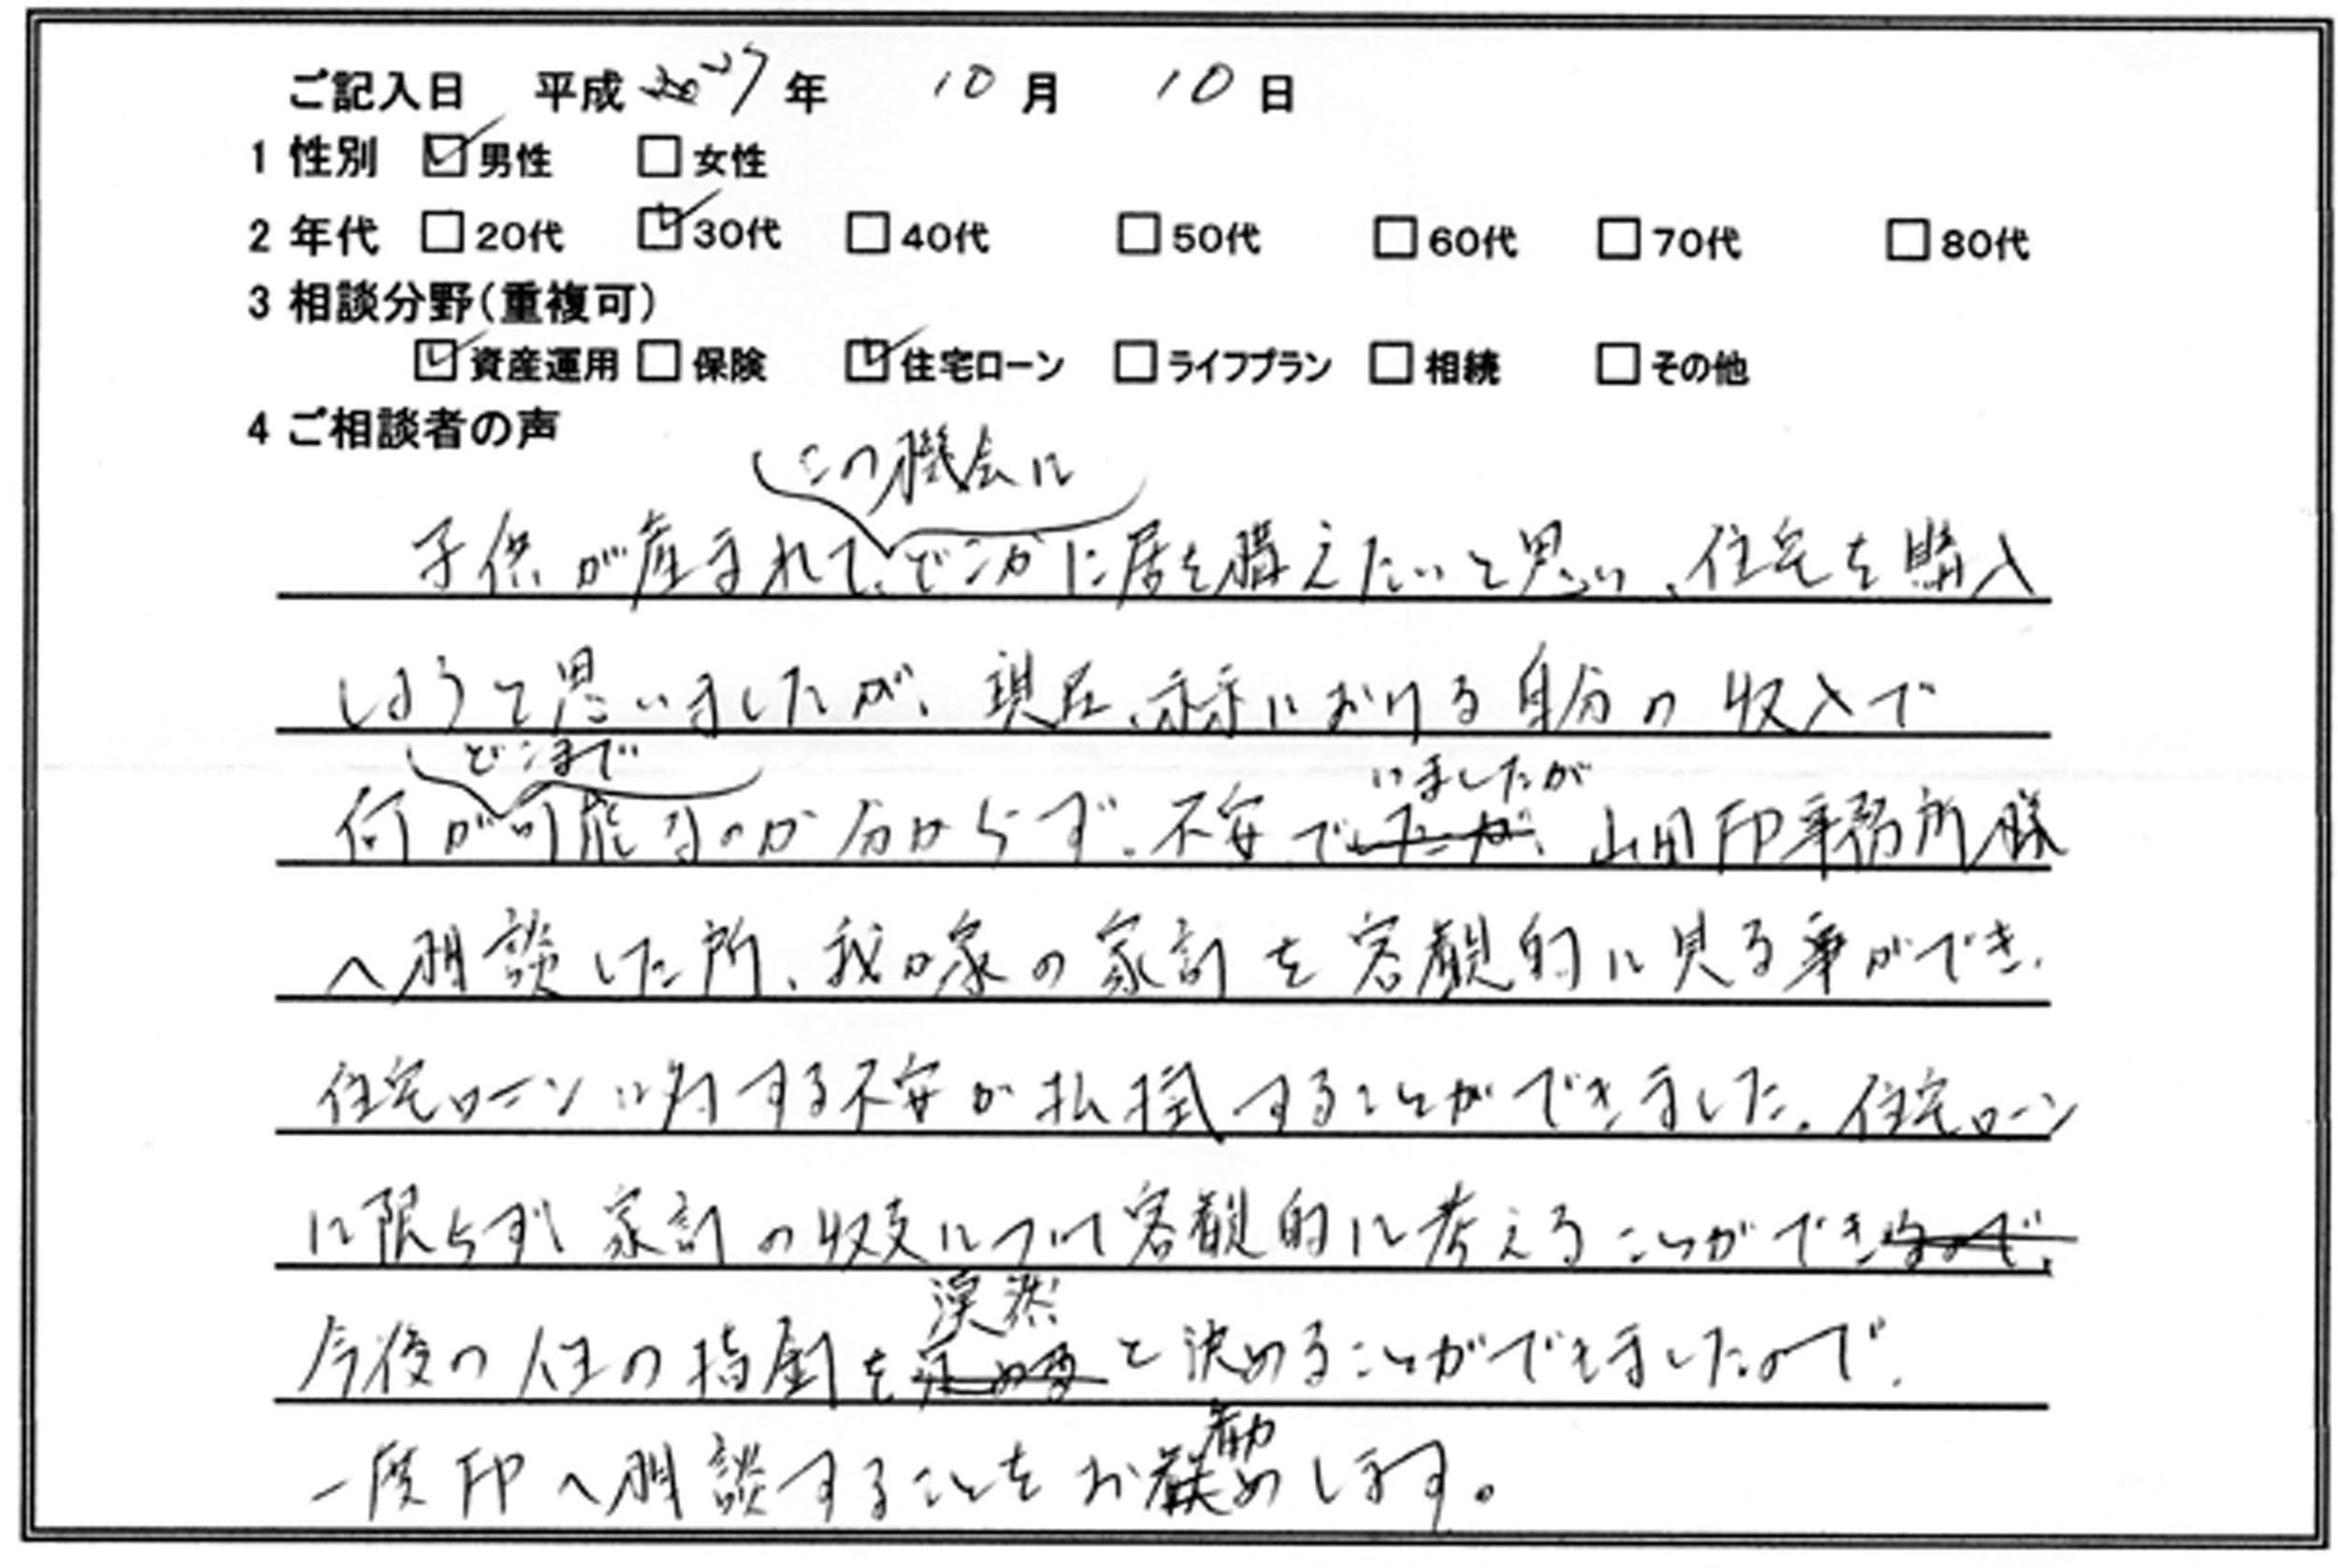 ご記入日 平成 27年 10月 10日
1 性別 ☑男性 □女性
2 年代 □20代 ☑30代 □40代 □50代 □60代 □70代 □80代
3 相談分野(重複可)
☑資産運用 □保険 ☑住宅ローン □ライフプラン □相続 □その他
4 ご相談者の声
この機会に
子供が産まれて、どこかに居を構えたいと思い、住宅を購入
しようと思いましたが、現在、赤赤における自分の収入で
どこまで
いましたが
何が可能なのか分からず、不安で 山田FP事務所様
へ相談した所、我が家の家計を客観的に見る事ができ、
住宅ローンに対する不安が払拭することができました。住宅ローン
に限らず、家計の収支について客観的に考えることができ
漠然
今後の人生の指針を と決めることができましたので、
勧
一度FPへ相談することをお め します。